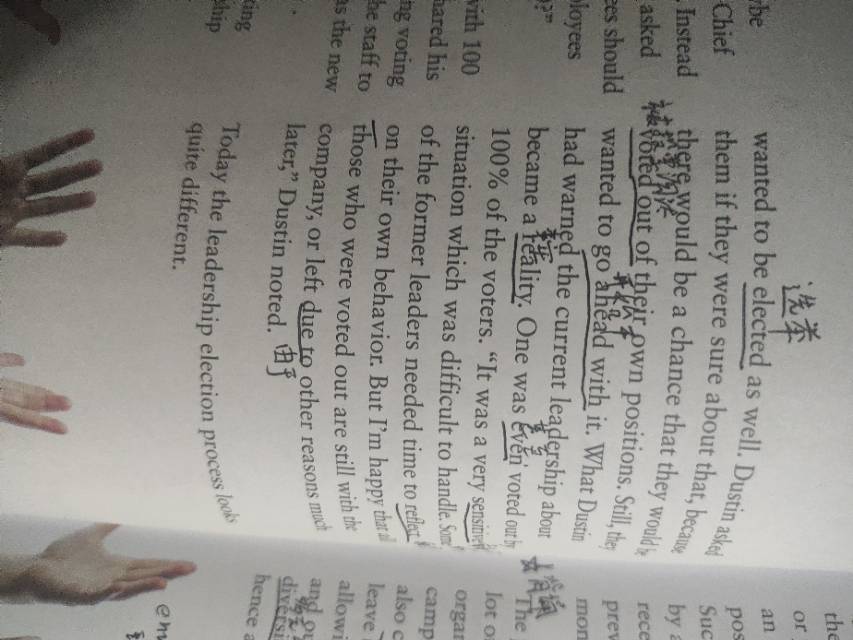 Chief
. Instead
asked
ees should
ployees
?”
with 100
hared his
ng voting
he staff to
as the new
.
ting
ship
选举
wanted to be elected as well. Dustin asked
them if they were sure about that, because
there would be a chance that they would be
voted out of their own positions. Still, they
wanted to go ahead with it. What Dustin
had warned the current leadership about
became a reality. One was even voted out by
100% of the voters. “It was a very sensitive
situation which was difficult to handle. Some
of the former leaders needed time to reflect
on their own behavior. But I’m happy that all
those who were voted out are still with the
company, or left due to other reasons much
later,” Dustin noted.
由于
Today the leadership election process looks
quite different.
the
or
an
po
Suc
by a
rece
prev
mon
The
lot o
organ
camp
also c
leave
allowi
and ou
diversi
hence a